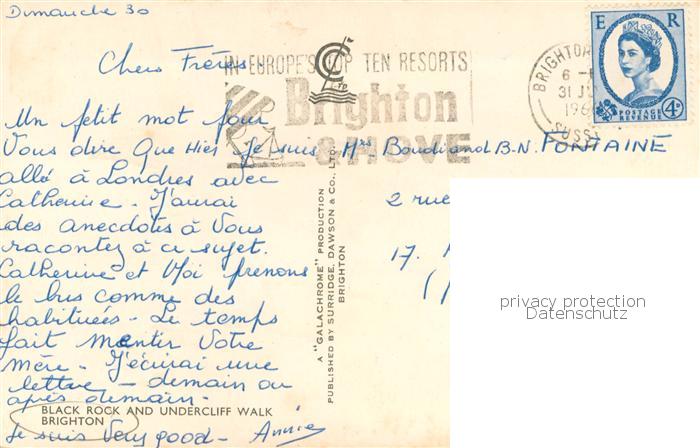 Dimanche 30
Chers Frères
Un petit mot pour
Vous dire Que Hier Je suis
allé à Londres avec
Catherine - J'aurai
des anecdotes à Vous
racontez à ce sujet.
Catherine et Moi prenons
le bus comme des
habituées - Le temps
fait mentir Votre
mère - J'écrirai une
lettre - demain ou
après demain -
Je suis Very good - Annie
BLACK ROCK AND UNDERCLIFF WALK
BRIGHTON
A "GALACHROME" PRODUCTION
PUBLISHED BY SURRIDGE, DAWSON & CO., LTD.
BRIGHTON
IN EUROPE'S TOP TEN RESORTS
Brighton
& HOVE
BRIGHTON
31
196
SUSS
E R
POSTAGE
4D
Mrs B.N. FONTAINE
2 rue
17.
privacy protection
Datenschutz